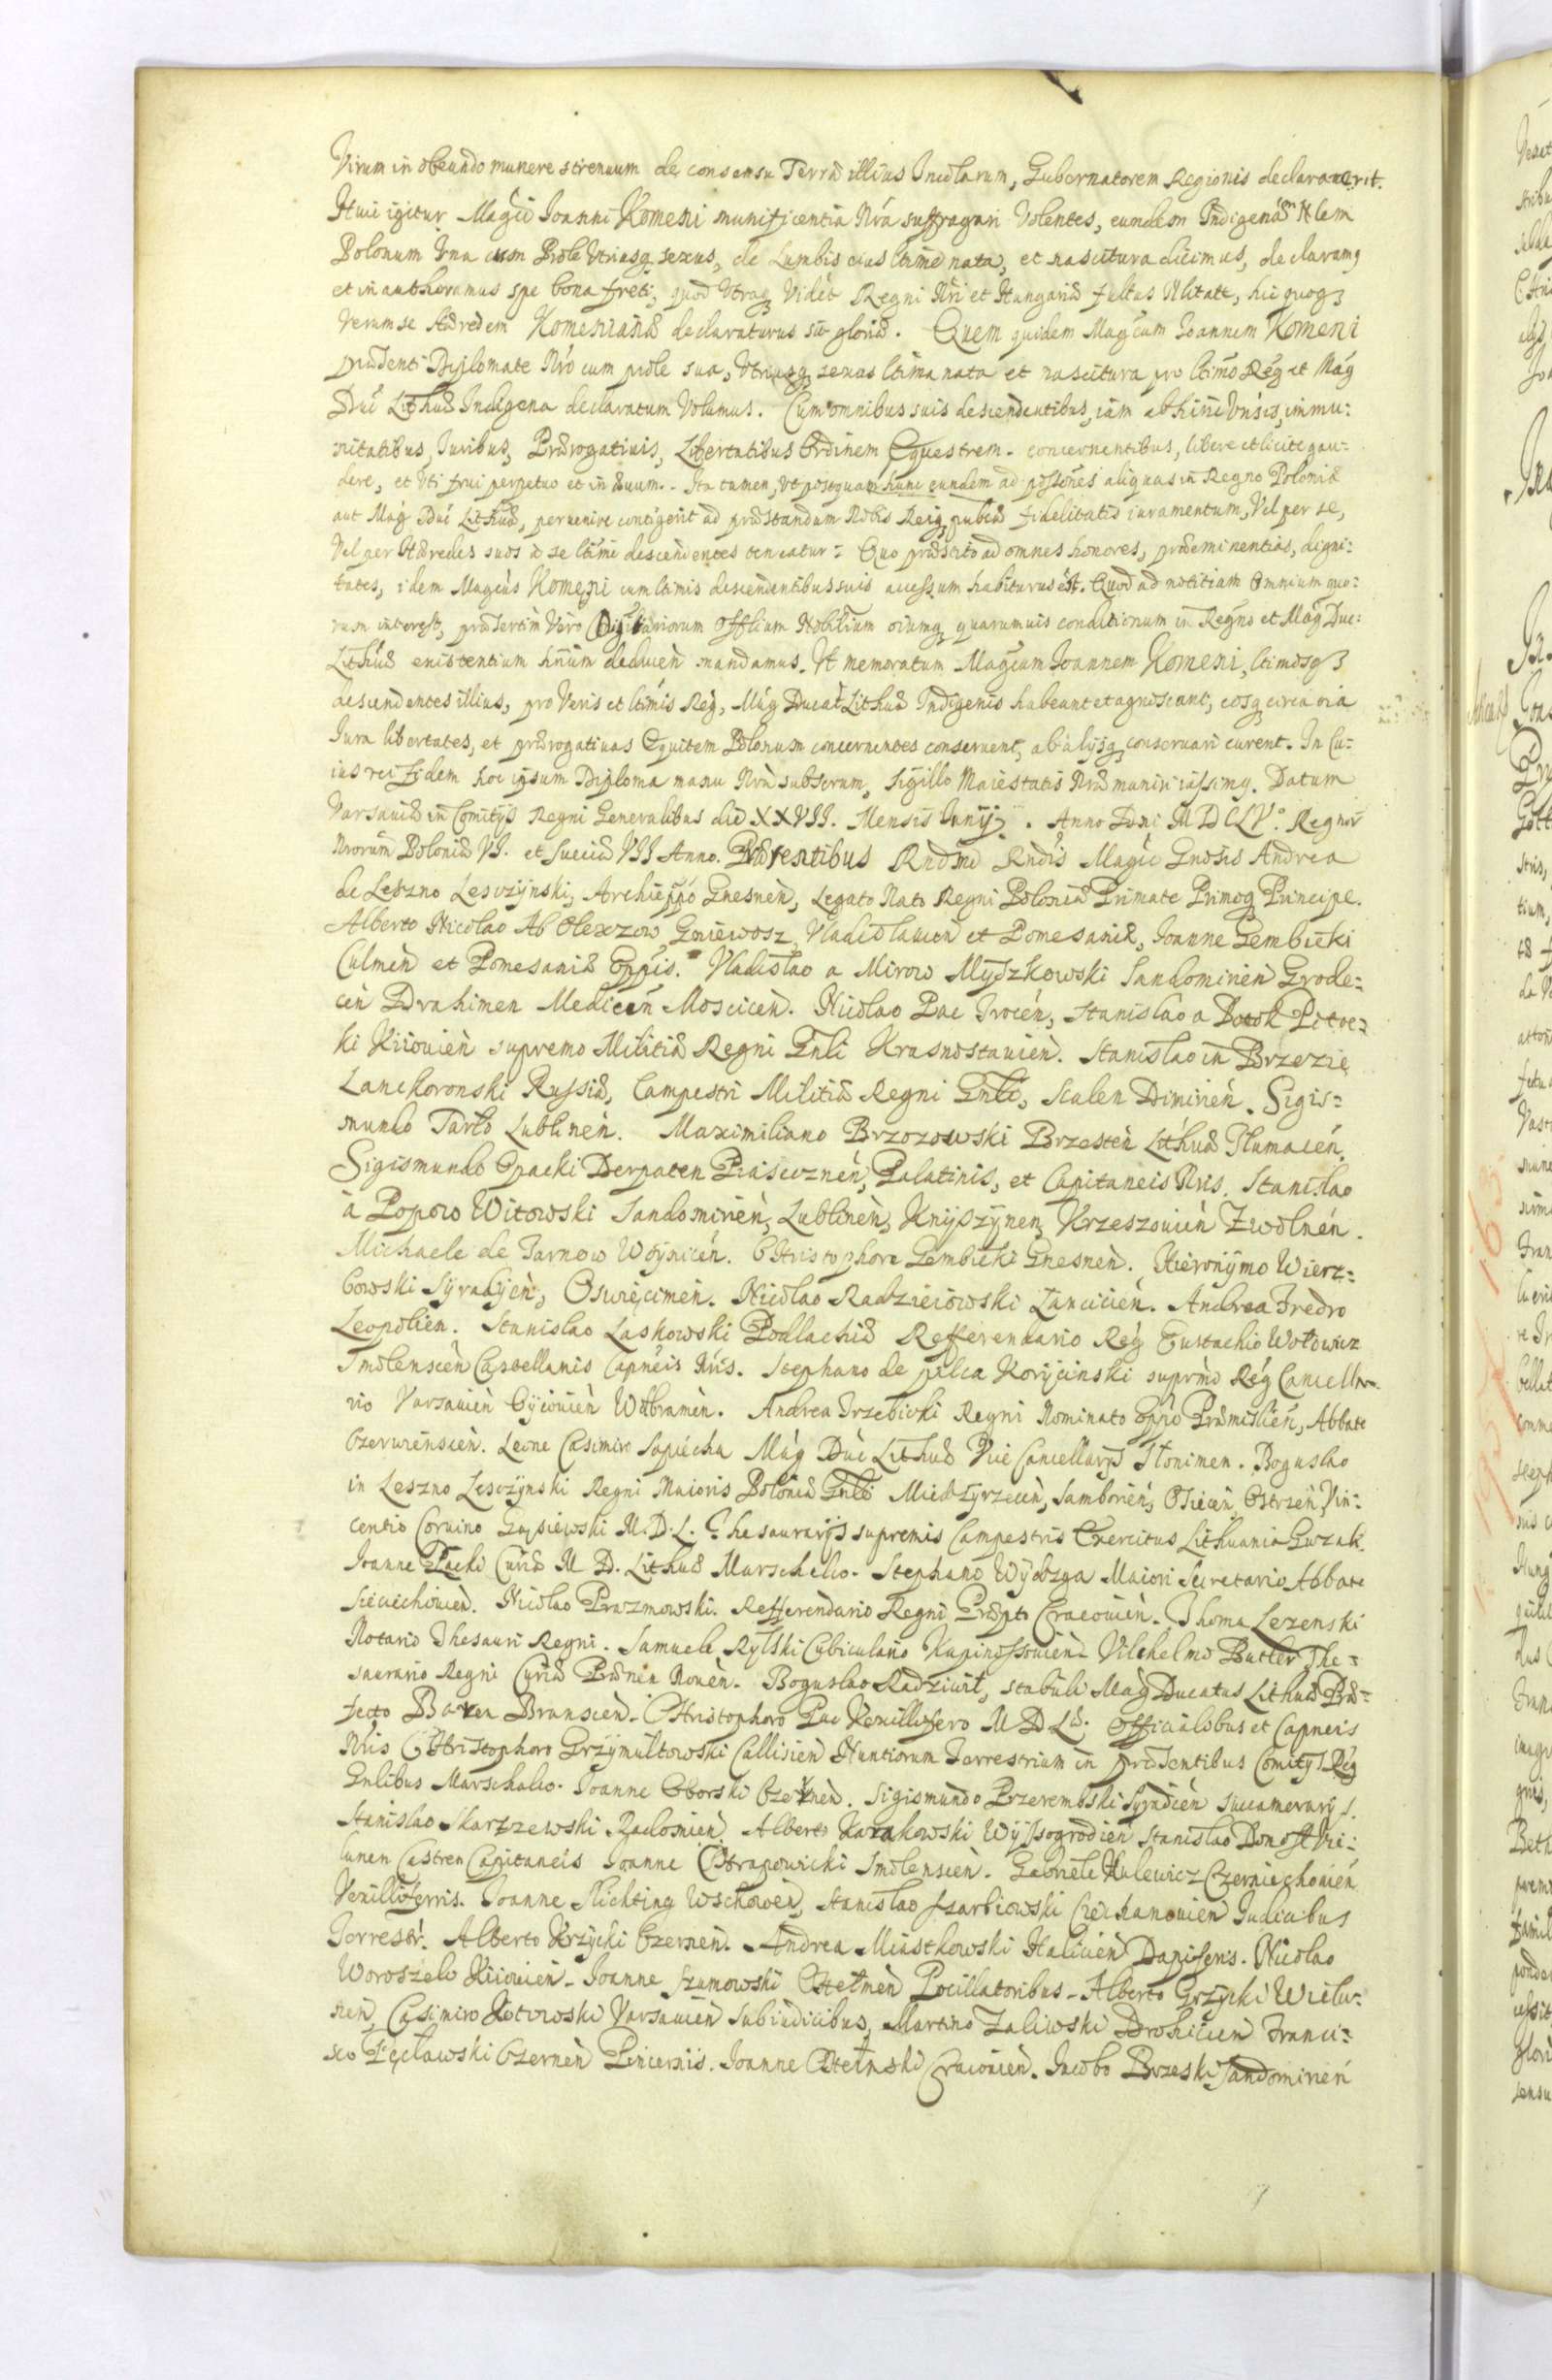 Virum in obeundo munere strenuum de consensu Terrae illius Incolarum, Gubernatorem Regionis declaraverit.
Huic igitur Magco Joanni Komeni munificentia Nra suffragari Volentes, eundem Indigenam Nlem
Polonum Vna cum Prole Vtriusq sexus, de Lumbis eius ltime nata, et nascitura dicimus, declaramq
et in authoramus spe bona freti, quod Vtraq Videlt Regni Nri et Hungariae fultus Nlitate, hic quoq
Verum se Haeredem Komenianae declaraturus sit gloriae. Quem quidem Magcum Joannem Komeni
praesenti Diplomate Nro cum prole sua, Vtriusq sexus ltima nata et nascitura pro ltimo Reg et Mag
Duc Lithuae Indigena declaratum Volumus. Cum omnibus suis descendentibus, iam abhinc Vnsis, immu-
nitatibus, Iuribus, Praerogatiuis, Libertatibus Ordinem Equestrem concernentibus, libere et licite gau-
dere, et Vti frui perpetuo et in aeuum. Ita tamen, Vt postquam hunc eundem ad possones aliquas in Regno Poloniae
aut Mag Duc Lithuae, peruenire contigerit ad praestandum Nobis Reiq pubcae fidelitatis iuramentum, Vel per se,
Vel per Haeredes suos a se ltime descendentes teneatur: Quo praestito ad omnes honores, praeeminentias, digni-
tates, idem Magcus Komeni cum ltimis descendentibus suis accessum habiturus est. Quod ad notitiam Omnium quo-
rum interest, praesertim Vero Dignitariorum Offlium Nobilium oiumq quarumuis conditionum in Regno et Mag Duc:
Lithuae existentium hnum deducen mandamus. Vt memoratum Magcum Joannem Komeni, ltimosq
descendentes illius, pro Veris et ltimis Reg, Mag Ducat Lithuae Indigenis habeant et agnoscant, eosq circa oia
Iura libertates, et praerogatiuas Equitem Polonum concernentes conseruent, ab alijsq conseruari curent. In Cu-
ius rei fidem hoc ipsum Diploma manu Nra subscrum, Sigillo Maiestatis Nrae muniri iussimq. Datum
Varsauiae in Comitijs Regni Generalibus die XXVII. Mensis Junij. Anno Dni MDCLV. Regnor
Nrorum Poloniae VI. et Sueciae VII Anno. Praesentibus Rndmo Rndis Magcis Gnosis Andrea
de Leszno Lesczÿnski, Archieppo Gnesnen, Legato Nato Regni Poloniae Primate Primoq Principe.
Alberto Nicolao Ab Olexzow Gniewosz, Vladislauien et Pomesaniae, Joanne Gembicki
Culmen et Pomesaniae Eppis. Vladislao a Mirow Myszkowski Sandomirien Grode-
cen Drahimen Medicen Moscicen. Nicolao Pac Trocen, Stanislao a Potok Potoc-
ki Kiiouien supremo Militiae Regni Gnli Krasnostauien. Stanislao in Brzezie
Lanckoronski Russiae, Campestri Militiae Regni Gnli, Scalen Dimirien. Sigis-
mundo Tarło Lublinen. Maximiliano Brzozowski Brzesten Lithuae Tlumacen.
Sigismundo Opacki Derpaten Prasczneń, Palatinis, et Capitaneis Nris. Stanislao
à Popow Witowski Sandomirien, Lublinen, Knyszÿnen, Krzeszouien Zwolnen.
Michaele de Tarnow Woynicen. Christophoro Gembicki Gnesnen. Hieronÿmo Wierz-
bowski Sÿradÿen, Oswięcimen. Nicolao Radzieiowski Lancicien. Andrea Fredro
Leopolien. Stanislao Laskowski Podlachiae Refferendario Reg Eustachio Wołowicz
Smolenscen Castellanis Capneis Nris. Stephano de pilca Korÿcinski supremo Reg Cancella-
rio Varsauien Oÿcouien Wolbramen. Andrea Trzebicki Regni Nominato Eppo Praemislien, Abbate
Czerwinscen. Leone Casimiro Sapieha Mag Duc Lithuae Vice Cancellarijs Słonimen. Boguslao
in Leszno Lesczÿnski Regni Maioris Poloniae Gnli Miedzÿrzecen, Samborien, Osiecen, Ostrzen, Vin-
centio Coruino Gąsiewski M. D. L. Thesaurarijs supremis Campestris Exercitus Lithuania
Joanne Packi Curiae M D. Lithuae Marschalco. Stephano Wÿdzga Maiori Secretario Abbate
Sieciechouien. Nicolao Prazmowski. Refferendario Regni Praepto Cracouien. Thoma Lezenski
Notario Thesauri Regni. Samuele Rylski Cubiculario Kapinossouien Vilhelmo Butler The-
saurario Regni Curiae Praenen Nouen. Boguslao Radziwił, Stabuli Mag Ducatus Lithuae Prae-
fecto Baren Branscen. Christophoro Pac Vexillifero M D L. Officialibus et Capneis
Nris Christophoro Grzÿmultowski Callisien Nuntiorum Terrestrium in praesentibus Comitÿs Reg
Gnlibus Marschalco. Joanne Oborski Czernen. Sigismundo Przerembski Sÿradien Succamerarÿs.
Stanislao Skarszewski Radomien. Alberto Karakowski Wÿssogrodien Stanislao Donoff Vie-
lunen Castren Capitaneis Joanne Chrapowicki Smolenscen. Gabriele Hulewicz Czerniechouien
Vexilliferis. Joanne Slichting Wschowen, Stanislao Szarbiowski Ciechanouien Iudicibus
Terrestr. Alberto Krzÿcki Czernen. Andrea Miastkowski Halicien Dapiferis. Nicolao
Woroszelo Kiiouien. Joanne Szumowski Chelmen Pocillatoribus. Alberto Grzÿcki Wielu-
nen, Casimiro Kotowski Varsauien Subiudicibus, Martino Zaliwski Drohicien Franci-
sco Pęcławski Czernen Pincernis. Joanne Chelmski Cracouien. Jacobo Brzeski Sandomirien